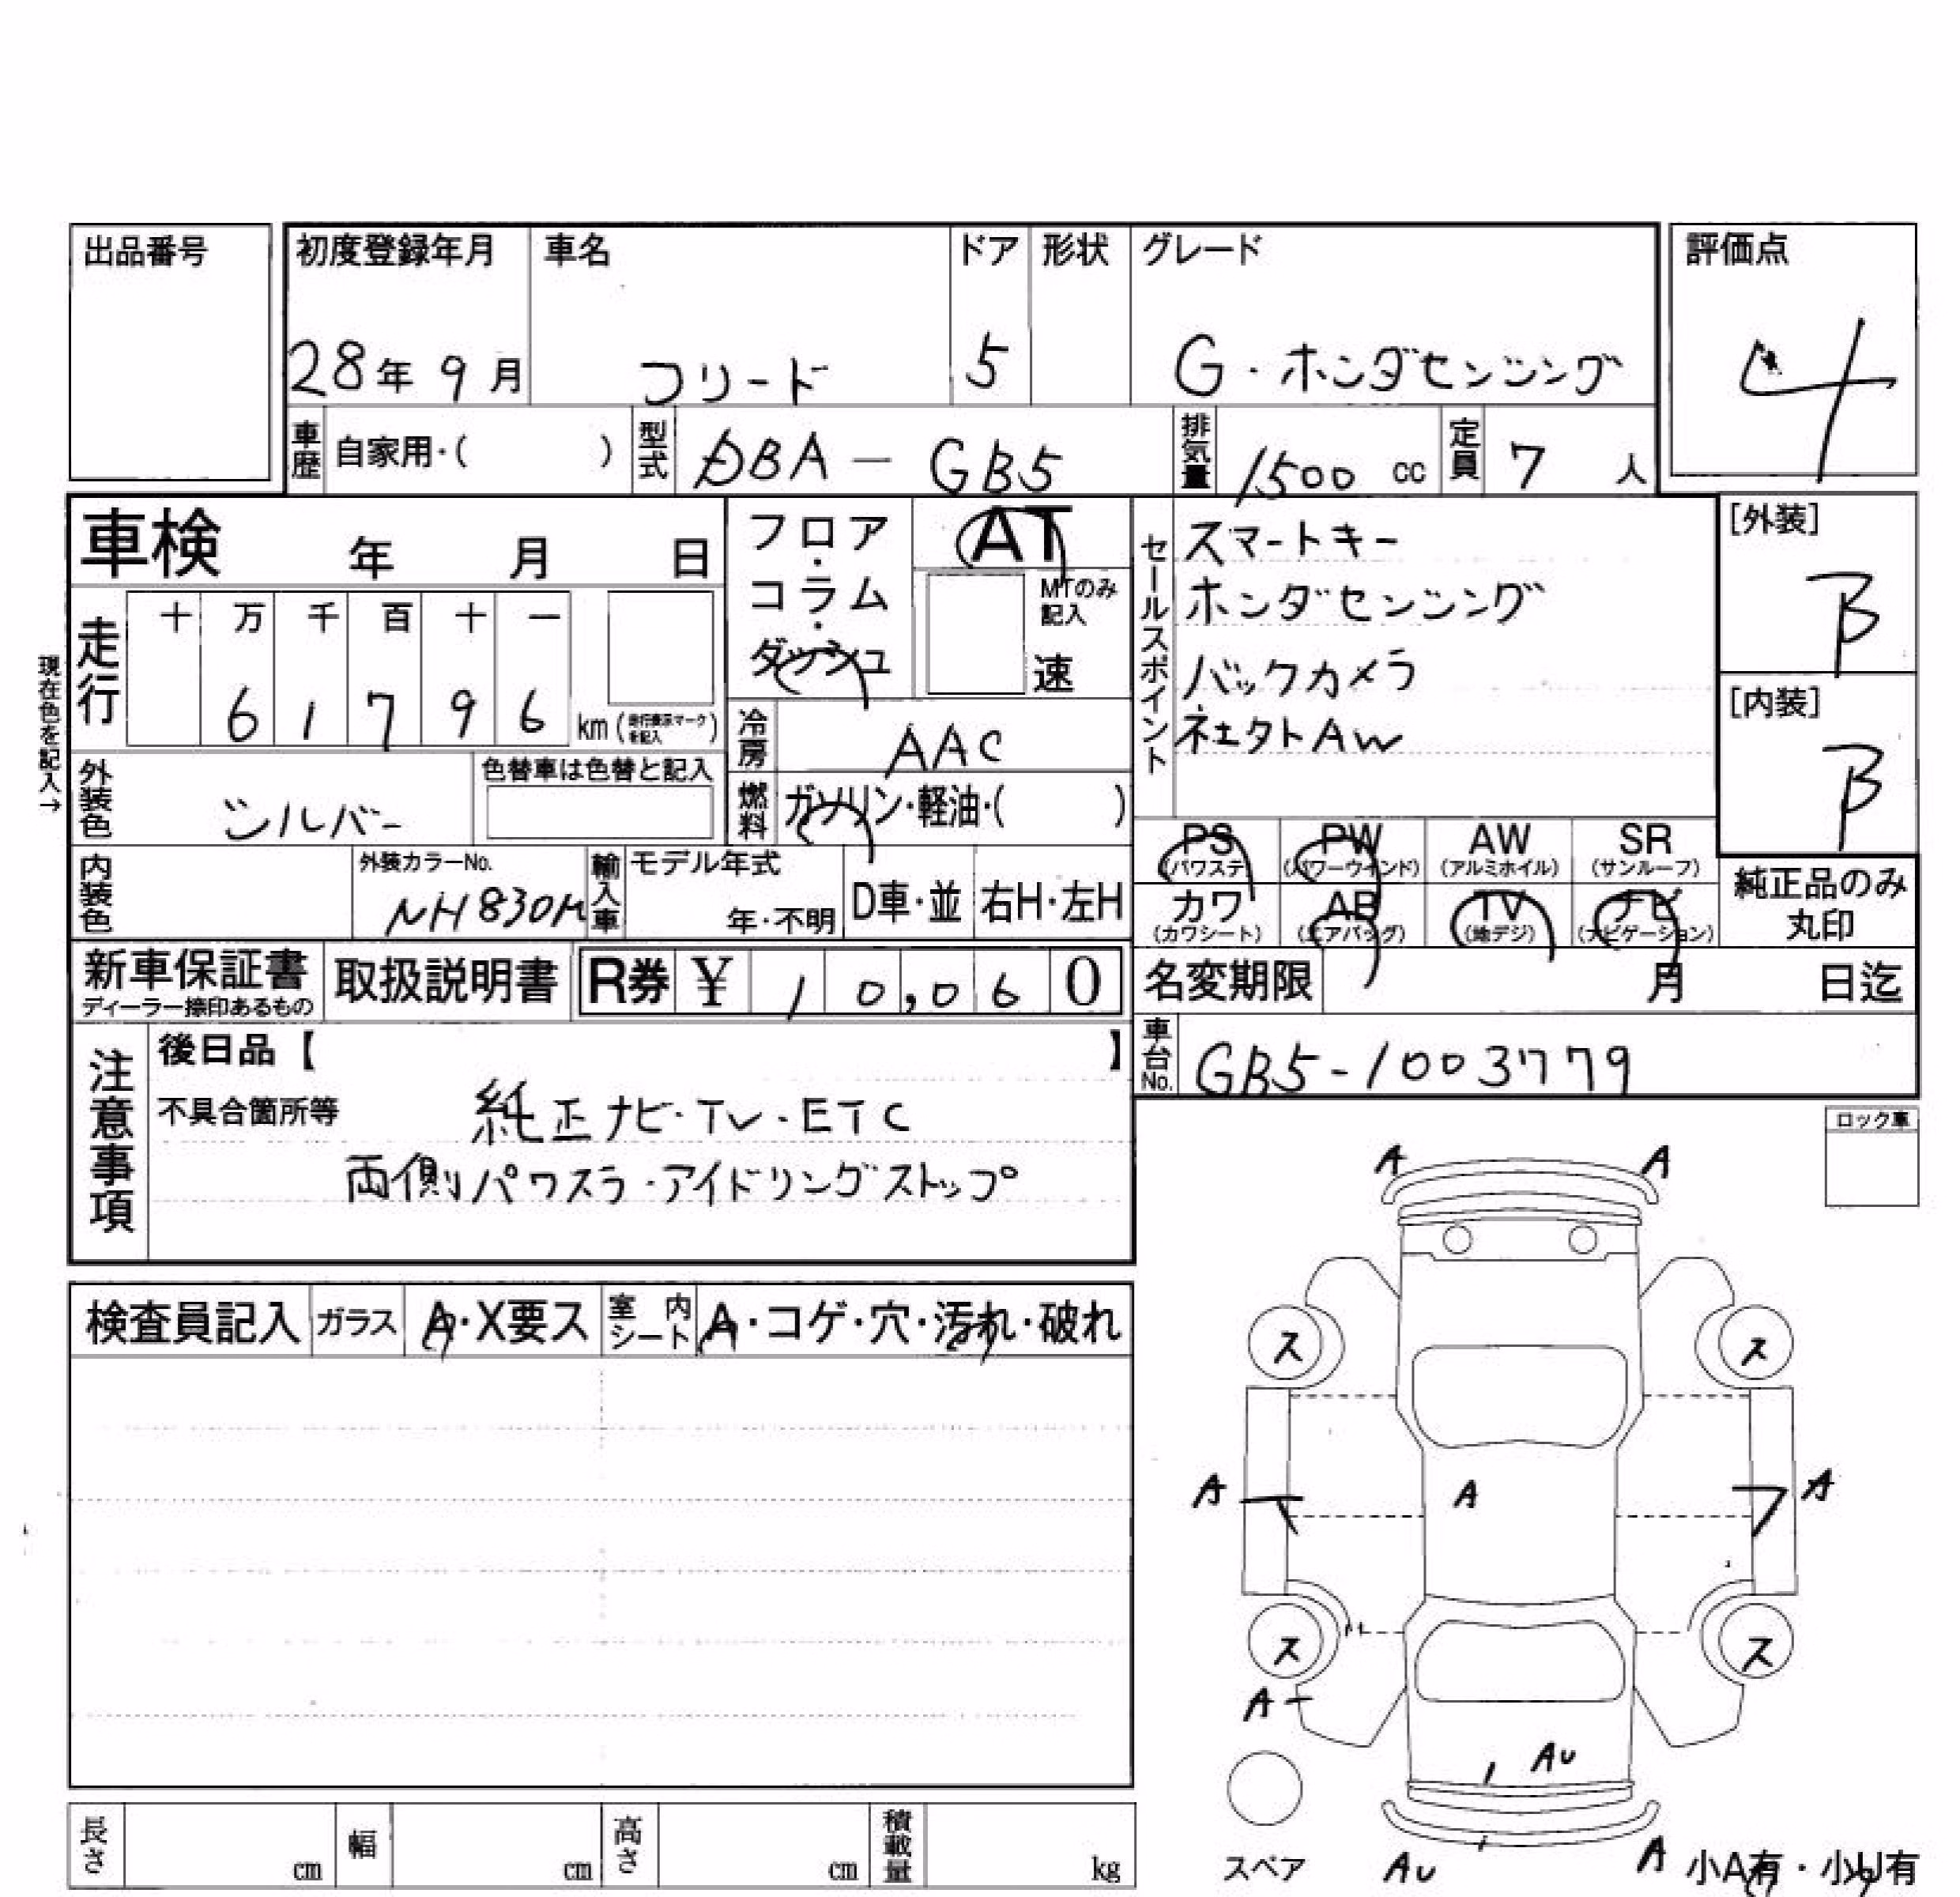 出品番号
初度登録年月 車名 ドア 形状 グレード 評価点
28年 9月 フリード 5 G・ホンダセンシング 4
車歴 自家用・( ) 型式 DBA-GB5 排気量 1500 cc 定員 7 人
車検 年 月 日
フロア・コラム・ダッシュ AT
MTのみ記入
速
現在色を記入→
走行 十 万 千 百 十 一
6 1 7 9 6 km (走行表示マークを記入)
冷房 AAC
燃料 ガソリン・軽油・( )
外装色 シルバー 色替車は色替と記入
内装色 外装カラーNo. NH830M 輸入車 モデル年式 年・不明 D車・並 右H・左H
セールスポイント
スマートキー
ホンダセンシング
バックカメラ
社外AW
[外装] B
[内装] B
PS(パワステ) PW(パワーウインド) AW(アルミホイル) SR(サンルーフ)
カワ(カワシート) AB(エアバッグ) TV(地デジ) ナビ(ナビゲーション)
純正品のみ丸印
新車保証書 ディーラー捺印あるもの 取扱説明書 R券 ¥ 10,060
名変期限 月 日迄
車台No. GB5-1003779
注意事項
後日品【 】
不具合箇所等 純正ナビ・TV・ETC
両側パワスラ・アイドリングストップ
ロック車
検査員記入 ガラス A・X要ス 室内シート A・コゲ・穴・汚れ・破れ
A A
ス ス
A A A
ス ス
A
AU
スペア AU A 小A有・小U有
長さ cm 幅 cm 高さ cm 積載量 kg